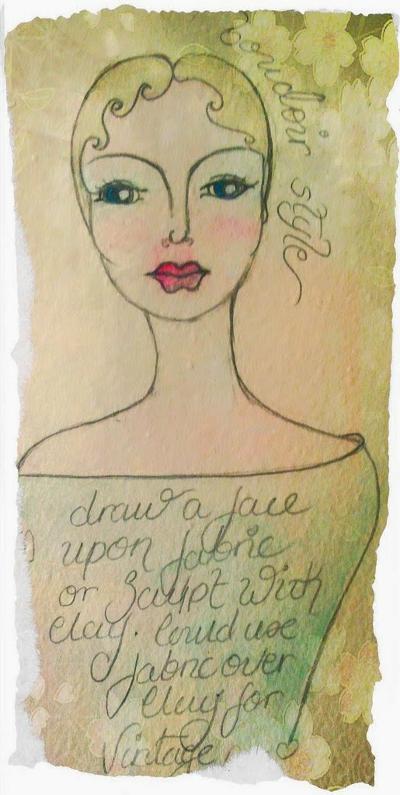 Boudoir style
draw a face
upon fabric
or Sculpt With
Clay. Could use
fabric over
Clay for
Vintage